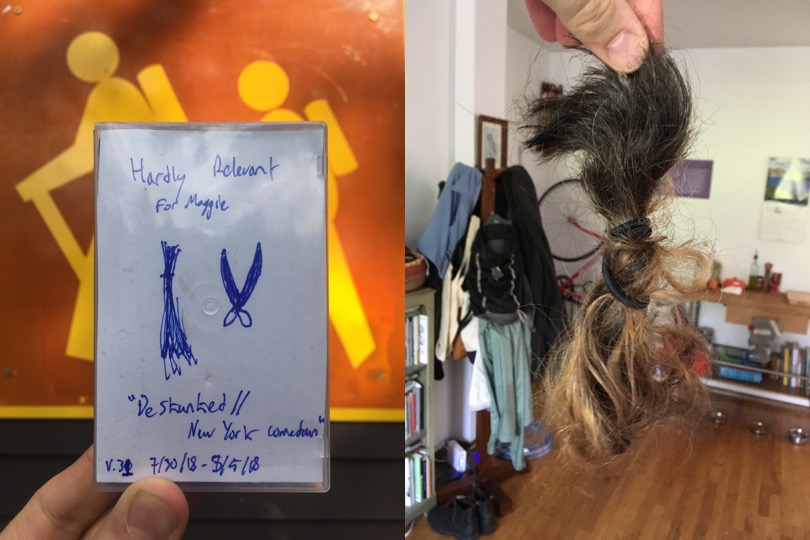 Hardly Relevant
For Maggie
"Deskunked //
New York comedown"
V.31 7/30/18 - 8/5/18